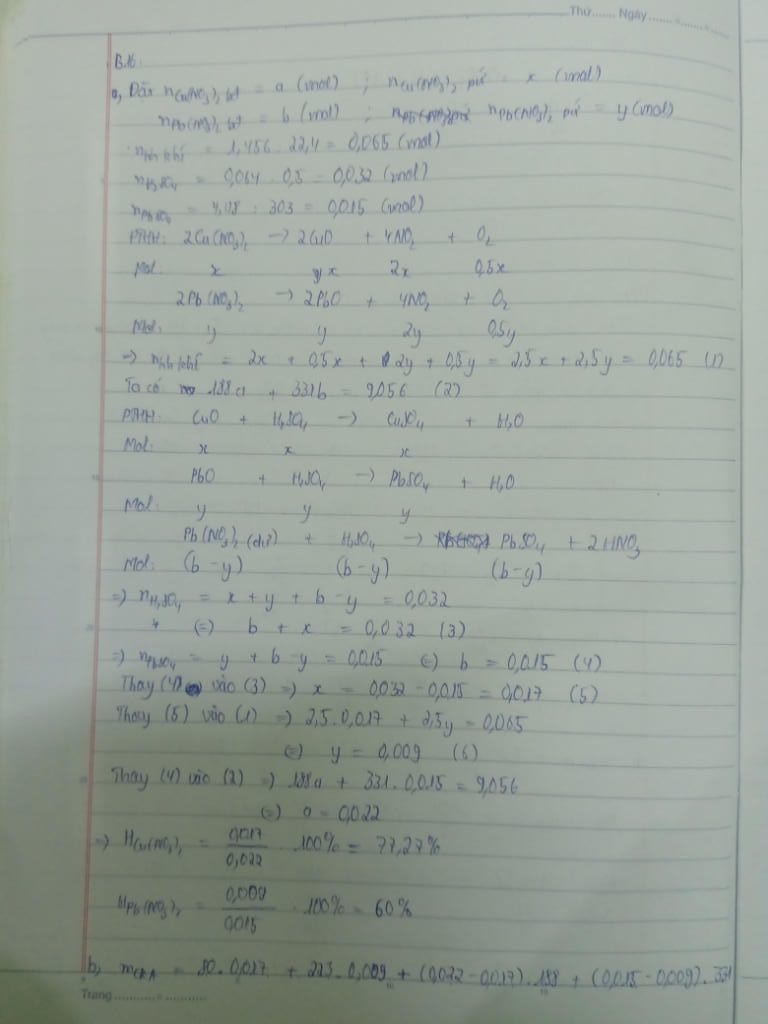 Thứ....... Ngày.......
B.16:
a, Đặt nCu(NO3)2 bđ = a (mol) ; nCu(NO3)2 pứ = x (mol)
nPb(NO3)2 bđ = b (mol) ; nPb(NO3)2 pứ = y (mol)
nhh khí = 1,456 : 22,4 = 0,065 (mol)
nH2SO4 = 0,064 . 0,5 = 0,032 (mol)
nPbSO4 = : 303 = 0,015 (mol)
PTHH: 2Cu(NO3)2 -> 2CuO + 4NO2 + O2
Mol: x x 2x 0,5x
2Pb(NO3)2 -> 2PbO + 4NO2 + O2
Mol: y y 2y 0,5y
=> nhh khí = 2x + 0,5x + 2y + 0,5y = 2,5x + 2,5y = 0,065 (1)
Ta có 188a + 331b = 9,056 (2)
PTHH: CuO + H2SO4 -> CuSO4 + H2O
Mol: x x x
PbO + H2SO4 -> PbSO4 + H2O
Mol: y y y
Pb(NO3)2 (dư) + H2SO4 -> PbSO4 + 2HNO3
Mol: (b-y) (b-y) (b-y)
=> nH2SO4 = x + y + b - y = 0,032
(=) b + x = 0,032 (3)
=> nPbSO4 = y + b - y = 0,015 (=) b = 0,015 (4)
Thay (4) vào (3) => x = 0,032 - 0,015 = 0,017 (5)
Thay (5) vào (1) => 2,5 . 0,017 + 2,5y = 0,065
(=) y = 0,009 (6)
Thay (4) vào (2) => 188a + 331 . 0,015 = 9,056
(=) a = 0,022
=> HCu(NO3)2 = 0,017/0,022 . 100% = 77,27%
HPb(NO3)2 = 0,009/0,015 . 100% = 60%
b, mCRA = 80 . 0,017 + 223 . 0,009 + (0,022 - 0,017) . 188 + (0,015 - 0,009) . 331
Trang...............